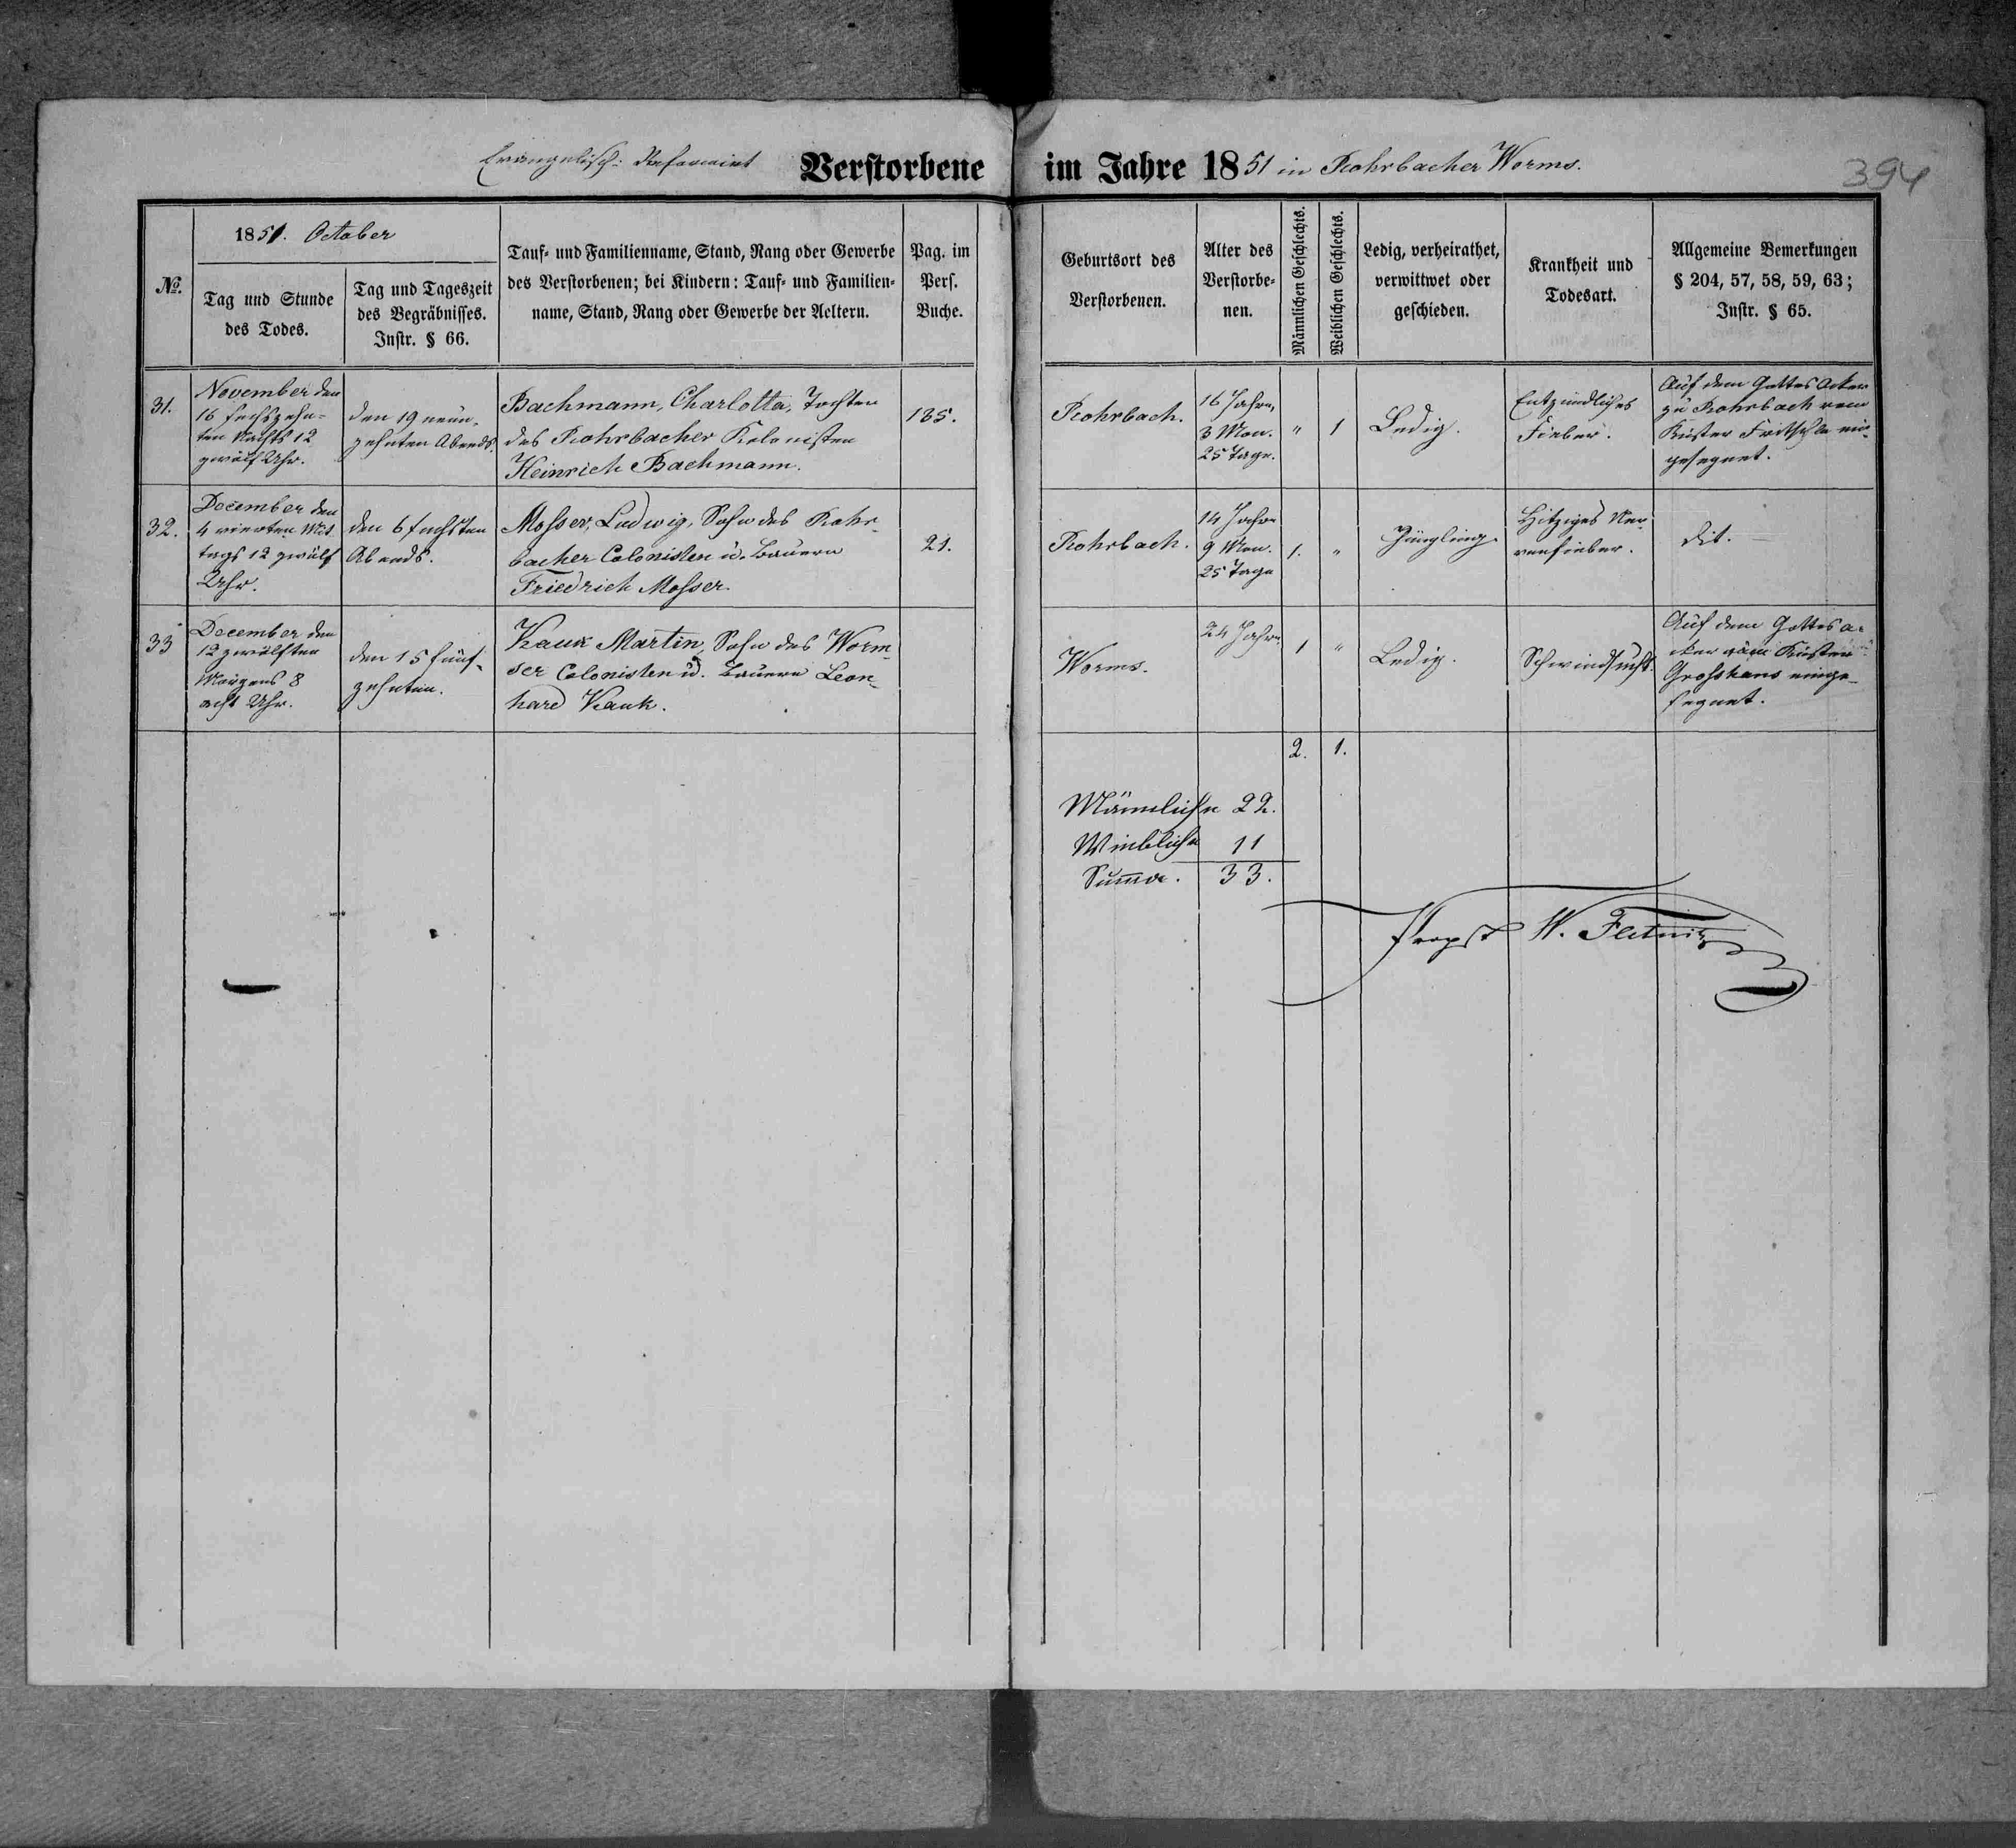 Evangelisch: Reformirt Verstorbene im Jahre 1851 in Rohrbacher Worms.
394
No.
1851. October
Tag und Stunde
des Todes.
Tag und Tageszeit
des Begräbnisses.
Instr. § 66.
Tauf- und Familienname, Stand, Rang oder Gewerbe
des Verstorbenen; bei Kindern: Tauf- und Familien-
name, Stand, Rang oder Gewerbe der Aeltern.
Pag. im
Pers.
Buche.
Geburtsort des
Verstorbenen.
Alter des
Verstorbe-
nen.
Männlichen Geschlechts.
Weiblichen Geschlechts.
Ledig, verheirathet,
verwittwet oder
geschieden.
Krankheit und
Todesart.
Allgemeine Bemerkungen
§ 204, 57, 58, 59, 63;
Instr. § 65.
31.
November den
16 sechszehn-
ten Nachts 12
zwölf Uhr.
den 19 neun-
zehnten Abends.
Bachmann, Charlotta, Tochter
des Rohrbacher Kolonisten
Heinrich Bachmann.
135.
Rohrbach.
16 Jahre,
3 Mon.
25 Tage.
"
1
Ledig.
Entzündliches
Fieber.
Auf dem Gottes Acker
zu Rohrbach vom
Küster Fritschle ein-
gesegnet.
32.
December den
4 vierten Mit
tags 12 zwölf
Uhr.
den 6 sechsten
Abends.
Mosser, Ludwig, Sohn des Rohr-
bacher Colonisten u. Bauern
Friedrich Mosser.
21.
Rohrbach.
14 Jahre
9 Mon.
25 Tage
1.
"
Jüngling.
Hitziges Ner-
venfieber.
dit.
33
December den
12 zwölften
Morgens 8
acht Uhr.
den 15 fünf-
zehnten.
Kauk Martin, Sohn des Worm-
ser Colonisten u. Bauern Leon-
hard Kauk.
Worms.
24 Jahre
1
"
Ledig.
Schwindsucht.
Auf dem Gottes a-
cker vom Küster
Grosshans einge-
segnet.
2. 1.
Männliche 22.
Weibliche 11
Summa. 33.
Propst W. Fletnitzer